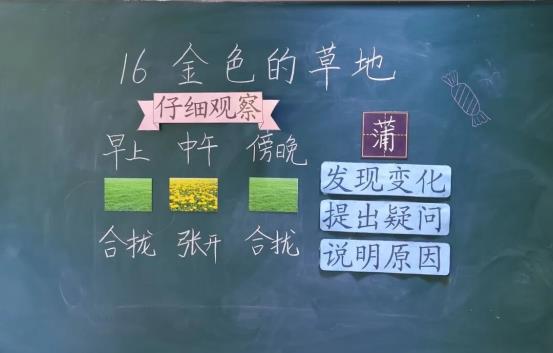 16 金色的草地
仔细观察
早上 中午 傍晚
合拢 张开 合拢
蒲
发现变化
提出疑问
说明原因